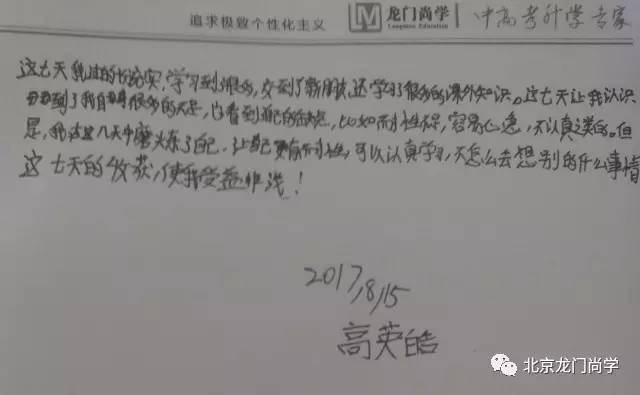 追求极致个性化主义
龙门尚学
Longmen Education
中高考升学专家
这七天我过的切充实,学习到很多,交到了新朋友,还学习了很多的课外知识。这七天让我认识
到了我自很多的不足,也看到自己的缺点,比如耐性不足,容易心急,不认真之类的。但
是,我在这几天中磨火炼了自己,让自己更有耐性,可以认真学习,不怎么去想别的什么事情
这七天的收获,使我受益非浅!
2017,8,15
高英皓
北京龙门尚学